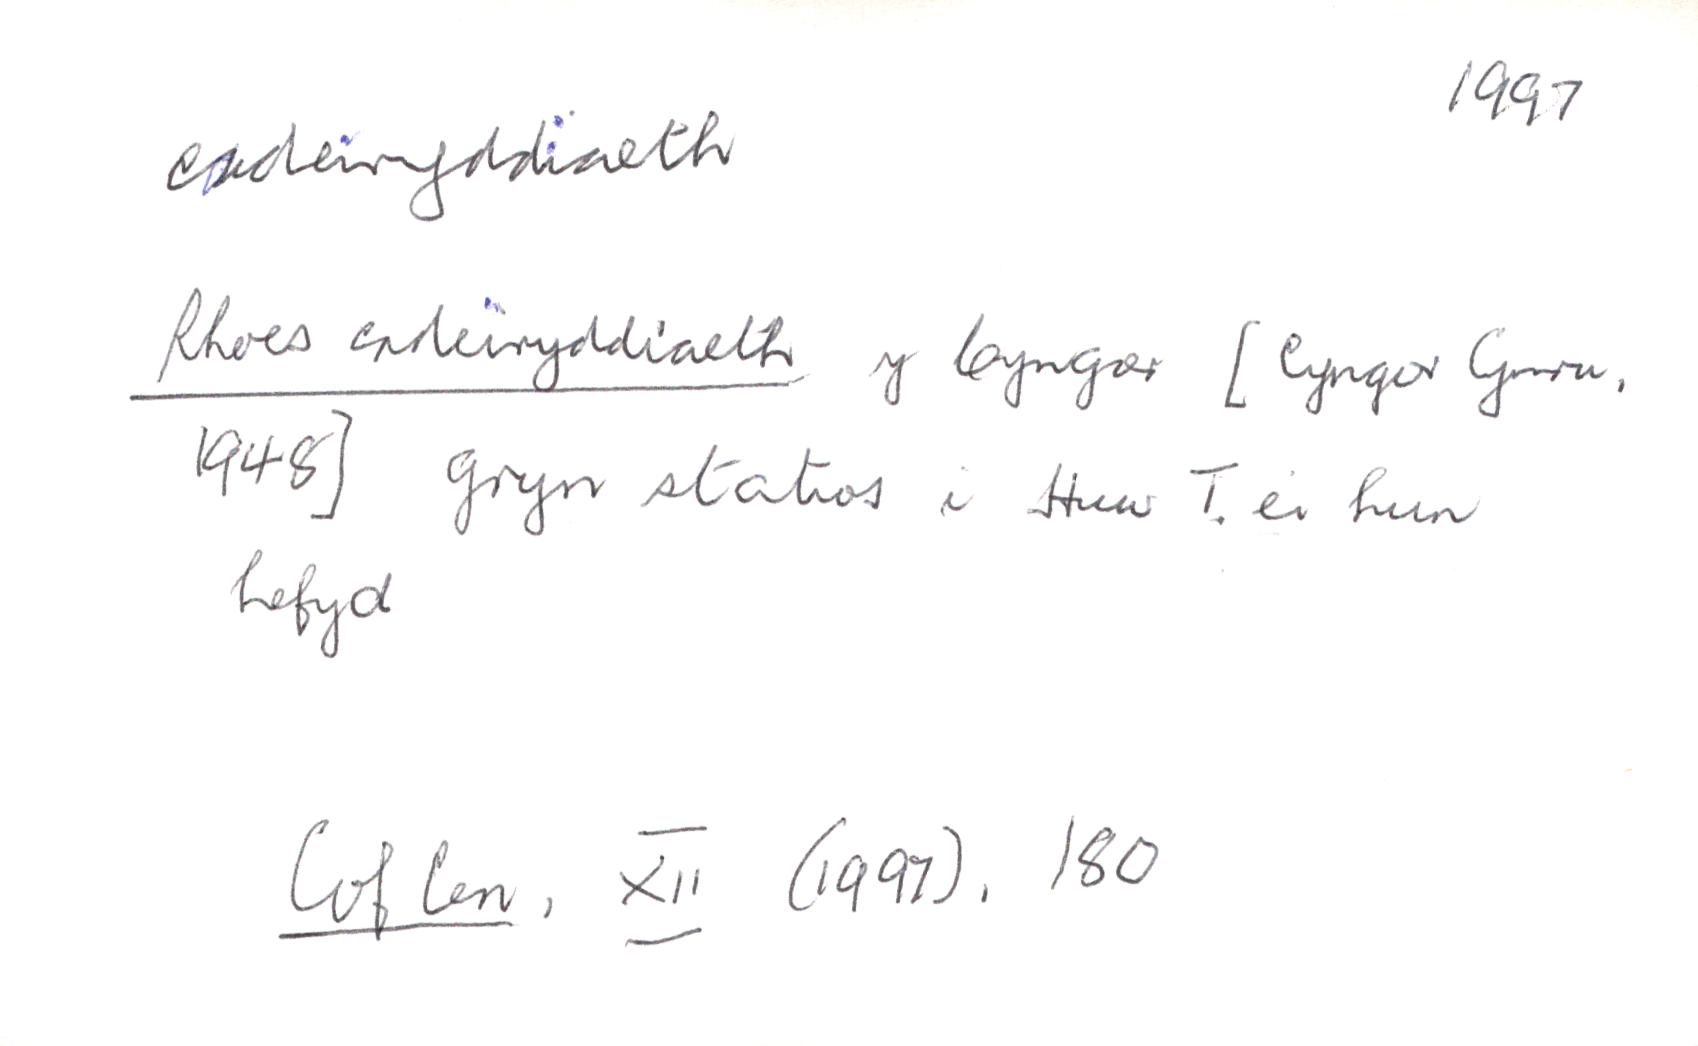 1997
cadeiryddiaeth
Rhoes cadeiryddiaeth y Cyngor [Cyngor Cymru,
1948] gryn statws i Huw T. ei hun
hefyd
Cof Cen, XII (1997), 180